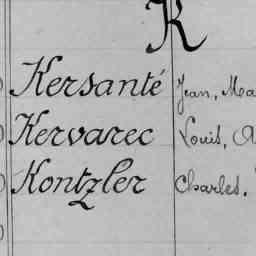 K
Kersanté Jean, Ma
Kervarec Louis,
Kontzler Charles.